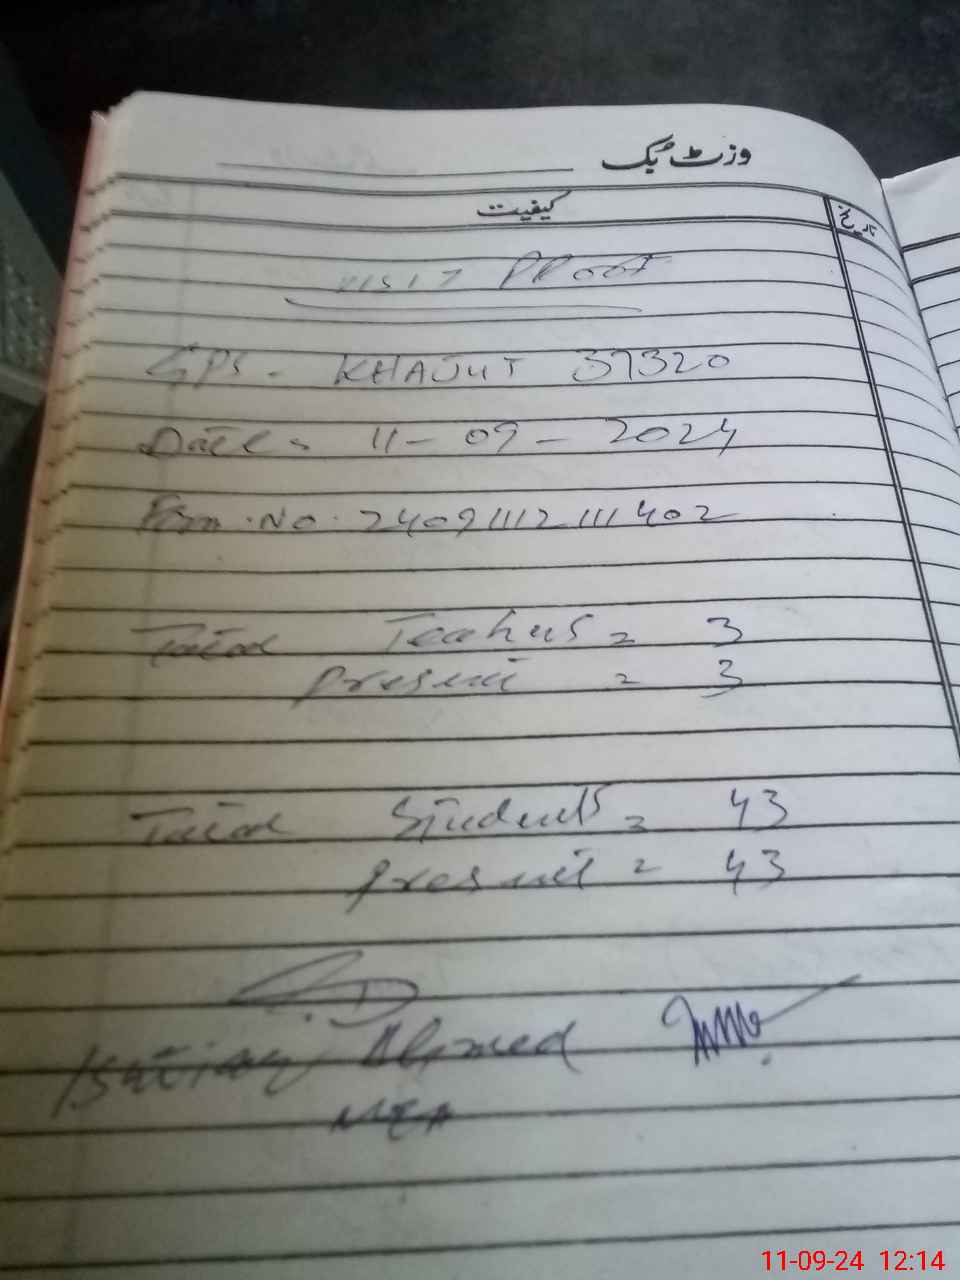 وزٹ بُک
کیفیت
تاریخ
VISIT PROOF
GPS - KHAJUT 37320
Date = 11 - 09 - 2024
Form . No . 24091112111402
Total Teachers = 3
present = 3
Total Students = 43
present = 43
Ahmed
MEA
11-09-24 12:14